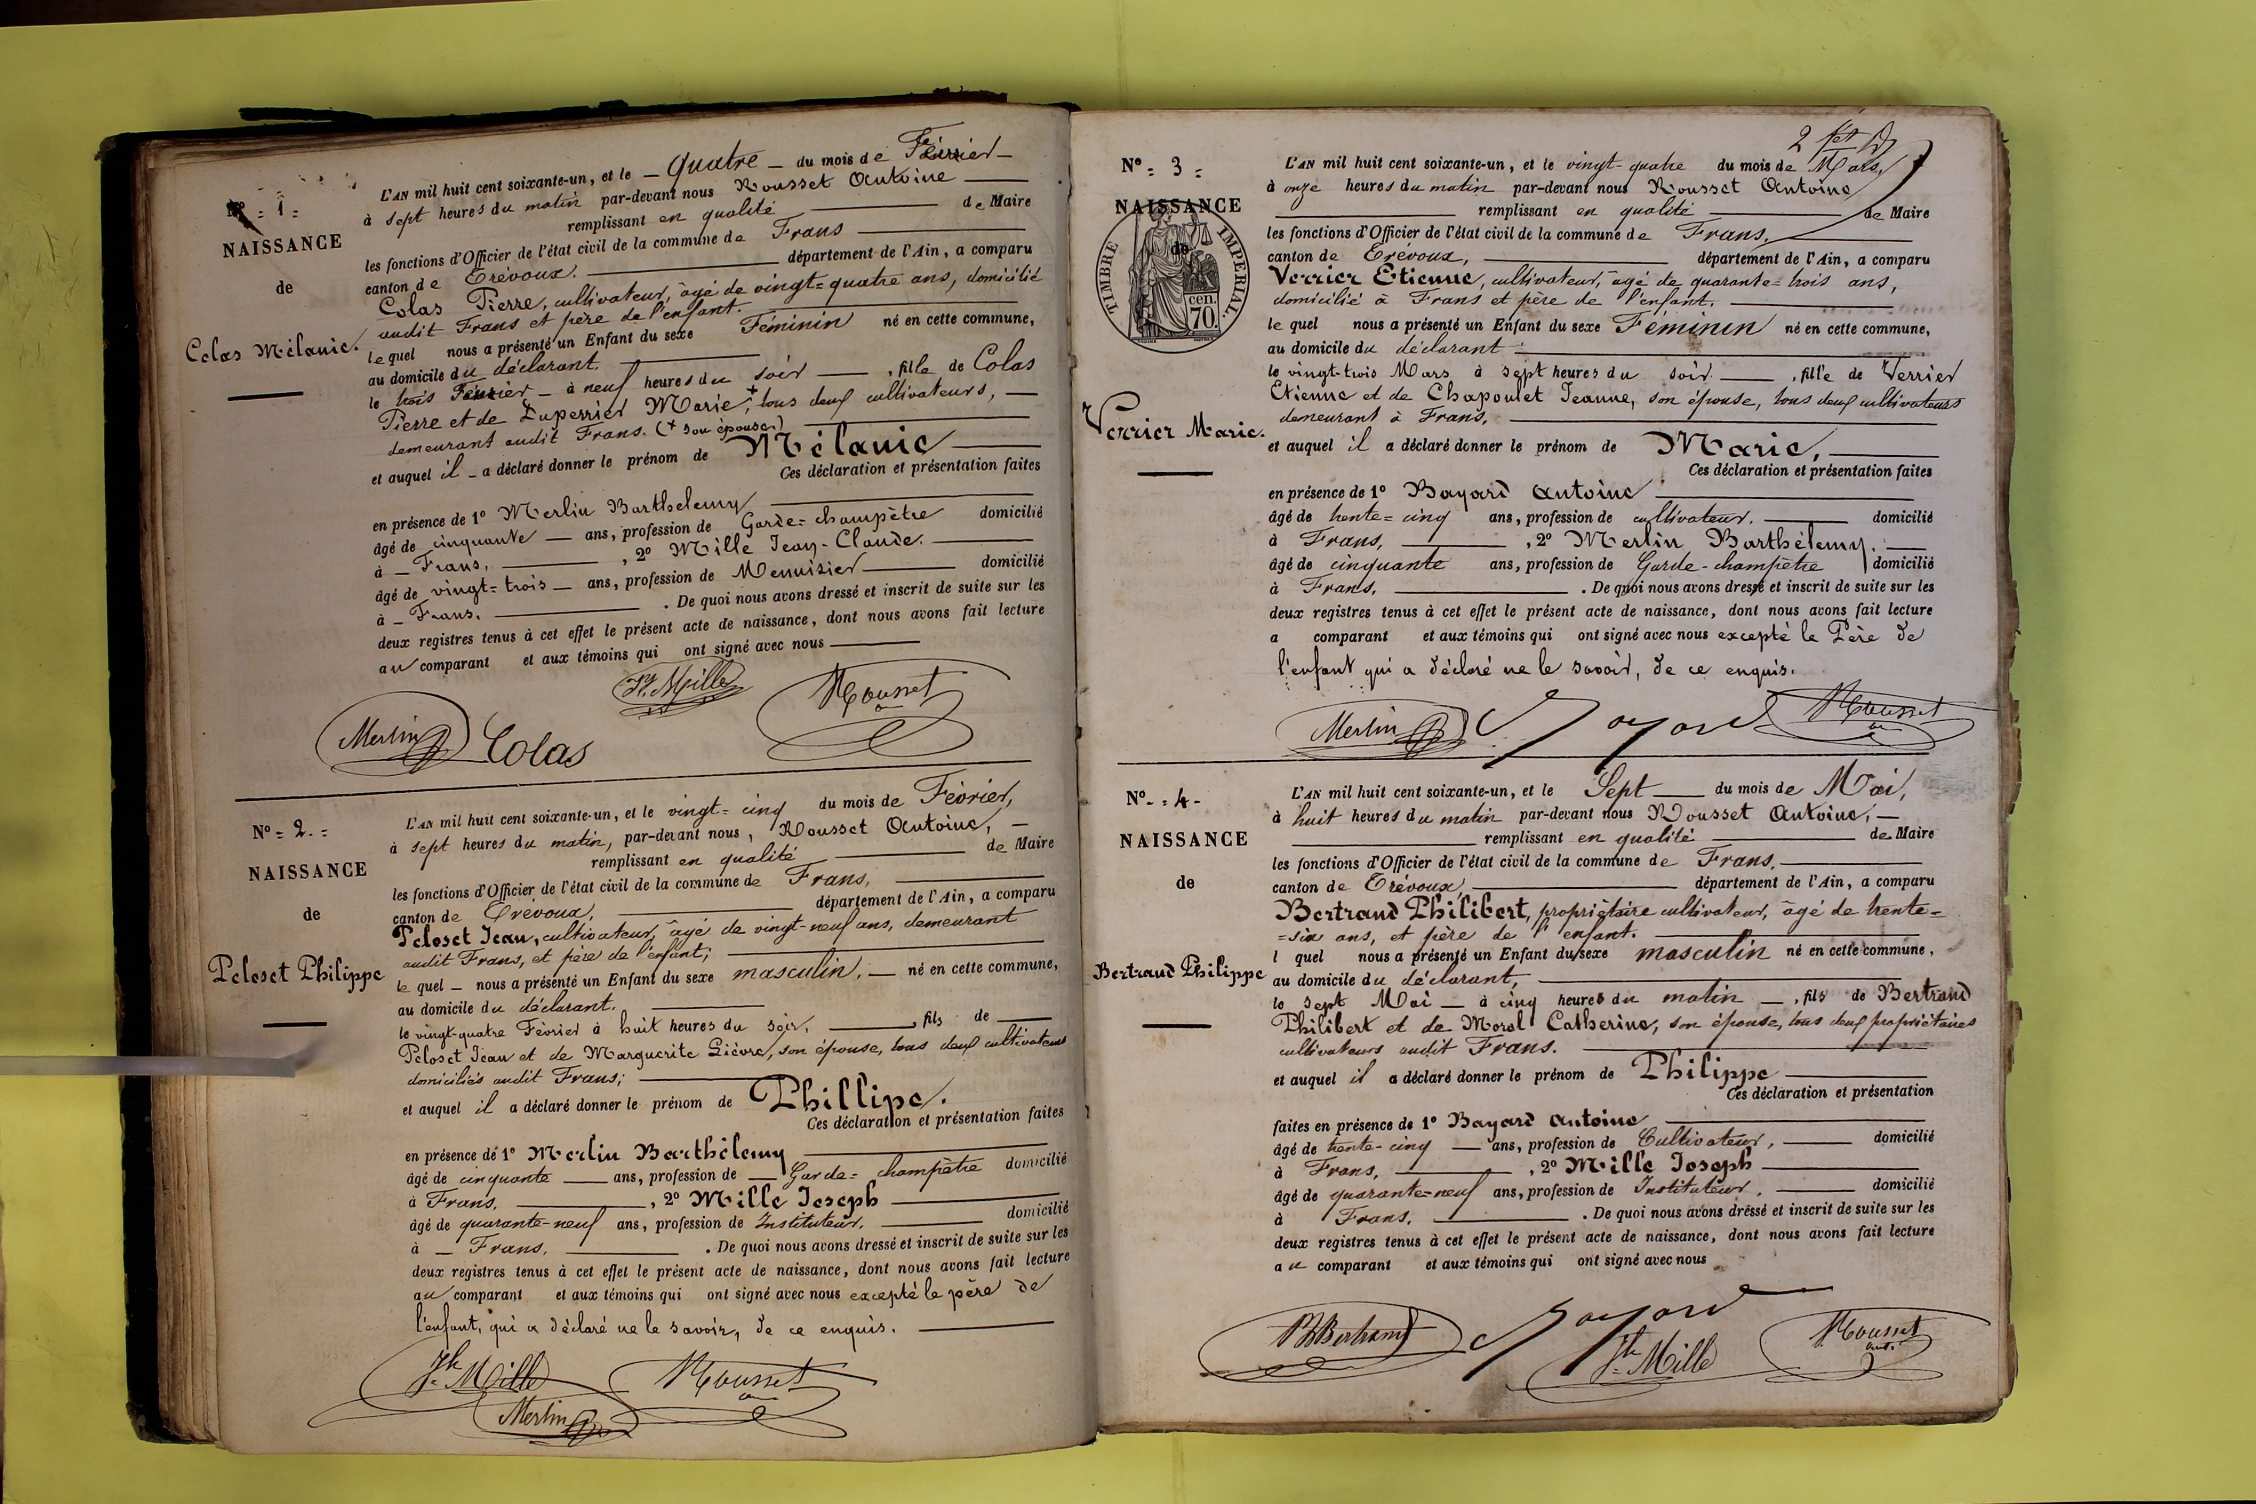 N° = 1 =
NAISSANCE
de
Colas Mélanie.
L'AN mil huit cent soixante-un, et le — Quatre — du mois de Février —
à sept heures du matin par-devant nous Rousset Antoine
remplissant en qualité de Maire
les fonctions d'Officier de l'état civil de la commune de Frans
canton de Trévoux. département de l'Ain, a comparu
Colas Pierre, cultivateur, âgé de vingt=quatre ans, domicilié
audit Frans et père de l'enfant.
lequel nous a présenté un Enfant du sexe Féminin né en cette commune,
au domicile du déclarant.
le trois Février — à neuf heures du soir — , fille de Colas
Pierre et de Duperrier Marie +, tous deux cultivateurs, —
demeurant audit Frans. (+ son épouse)
et auquel il - a déclaré donner le prénom de Mélanie
Ces déclaration et présentation faites
en présence de 1° Merlin Barthelemy
âgé de cinquante — ans, profession de Garde=champêtre domicilié
à — Frans. , 2° Mille Jean-Claude.
âgé de vingt=trois — ans, profession de Menuisier domicilié
à — Frans. . De quoi nous avons dressé et inscrit de suite sur les
deux registres tenus à cet effet le présent acte de naissance, dont nous avons fait lecture
au comparant et aux témoins qui ont signé avec nous
Mille
Rousset
Merlin
Colas
N° = 2. =
NAISSANCE
de
Peloset Philippe
L'AN mil huit cent soixante-un, et le vingt=cinq du mois de Février,
à sept heures du matin, par-devant nous, Rousset Antoine, —
remplissant en qualité de Maire
les fonctions d'Officier de l'état civil de la commune de Frans,
canton de Trévoux. département de l'Ain, a comparu
Peloset Jean, cultivateur, âgé de vingt-neuf ans, demeurant
audit Frans, et père de l'enfant;
le quel — nous a présenté un Enfant du sexe masculin. — né en cette commune,
au domicile du déclarant.
le vingt-quatre Février à huit heures du soir. , fils de
Peloset Jean et de Marguerite Lièvre, son épouse, tous deux cultivateurs
domiciliés audit Frans;
et auquel il a déclaré donner le prénom de Phillipe.
Ces déclaration et présentation faites
en présence de 1° Merlin Barthélemy
âgé de cinquante — ans, profession de — Garde=champêtre domicilié
à Frans. , 2° Mille Joseph
âgé de quarante-neuf ans, profession de Instituteur. domicilié
à — Frans. . De quoi nous avons dressé et inscrit de suite sur les
deux registres tenus à cet effet le présent acte de naissance, dont nous avons fait lecture
au comparant et aux témoins qui ont signé avec nous excepté le père de
l'enfant, qui a déclaré ne le savoir, de ce enquis.
Jh Mille
Rousset
Merlin
N° = 3 =
NAISSANCE
de
TIMBRE IMPERIAL.
cen.
70.
Verrier Marie.
L'AN mil huit cent soixante-un, et le vingt-quatre du mois de Mars,
à onze heures du matin par-devant nous Rousset Antoine
remplissant en qualité de Maire
les fonctions d'Officier de l'état civil de la commune de Frans.
canton de Trévoux, département de l'Ain, a comparu
Verrier Etienne, cultivateur, âgé de quarante=trois ans,
domicilié à Frans et père de l'enfant.
le quel nous a présenté un Enfant du sexe Féminin né en cette commune,
au domicile du déclarant.
le vingt-trois Mars à sept heures du soir. — , fille de Verrier
Etienne et de Chapoulet Jeanne, son épouse, tous deux cultivateurs
demeurant à Frans.
et auquel il a déclaré donner le prénom de Marie,
Ces déclaration et présentation faites
en présence de 1° Bayard Antoine
âgé de trente=cinq ans, profession de cultivateur. domicilié
à Frans, , 2° Merlin Barthélemy. —
âgé de cinquante ans, profession de Garde-champêtre domicilié
à Frans. . De quoi nous avons dressé et inscrit de suite sur les
deux registres tenus à cet effet le présent acte de naissance, dont nous avons fait lecture
a comparant et aux témoins qui ont signé avec nous excepté le Père de
l'enfant qui a déclaré ne le savoir, de ce enquis.
Merlin
Bayard
Rousset
N° - = 4 -
NAISSANCE
de
Bertrand Philippe
L'AN mil huit cent soixante-un, et le Sept — du mois de Mai,
à huit heures du matin par-devant nous Rousset Antoine, —
remplissant en qualité de Maire
les fonctions d'Officier de l'état civil de la commune de Frans.
canton de Trévoux, département de l'Ain, a comparu
Bertrand Philibert, propriétaire cultivateur, âgé de trente=
=six ans, et père de l'enfant.
l quel nous a présenté un Enfant du sexe masculin né en cette commune,
au domicile du déclarant,
le sept Mai — à cinq heures du matin — , fils de Bertrand
Philibert et de Morel Catherine, son épouse, tous deux propriétaires
cultivateurs audit Frans.
et auquel il a déclaré donner le prénom de Philippe
Ces déclaration et présentation
faites en présence de 1° Bayard Antoine
âgé de trente-cinq — ans, profession de Cultivateur, domicilié
à Frans, , 2° Mille Joseph
âgé de quarante=neuf ans, profession de Instituteur. domicilié
à Frans. . De quoi nous avons dressé et inscrit de suite sur les
deux registres tenus à cet effet le présent acte de naissance, dont nous avons fait lecture
au comparant et aux témoins qui ont signé avec nous
Bertrand
Bayard
Jh Mille
Rousset